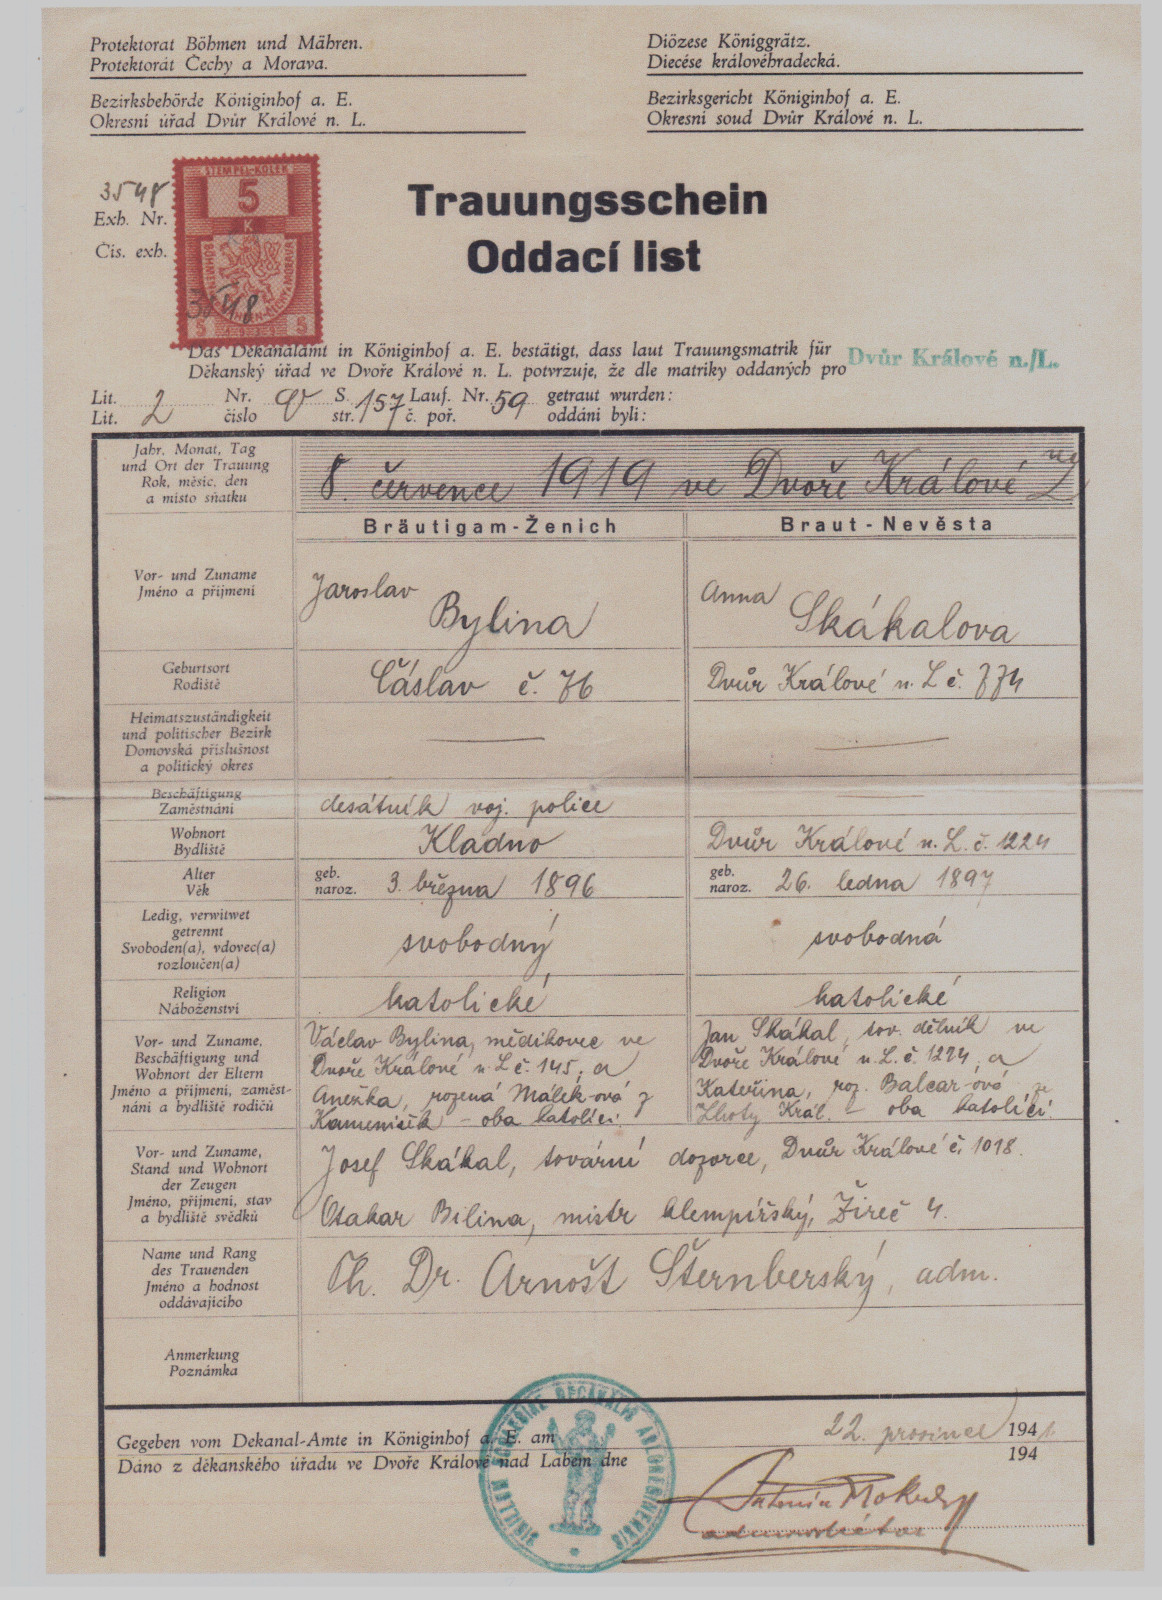 Protektorat Böhmen und Mähren.
Protektorát Čechy a Morava.
Diözese Königgrätz.
Diecése královéhradecká.
Bezirksbehörde Königinhof a. E.
Okresní úřad Dvůr Králové n. L.
Bezirksgericht Königinhof a. E.
Okresní soud Dvůr Králové n. L.
3548
Exh. Nr.
Čís. exh.
STEMPEL-KOLEK
5
K
3548
5 5
Trauungsschein
Oddací list
Das Dekanalamt in Königinhof a. E. bestätigt, dass laut Trauungsmatrik für
Děkanský úřad ve Dvoře Králové n. L. potvrzuje, že dle matriky oddaných pro
Dvůr Králové n./L.
Lit. Nr. S. Lauf. Nr. getraut wurden:
Lit. 2 číslo str. 157 č. poř. 59 oddáni byli:
Jahr, Monat, Tag
und Ort der Trauung
Rok, měsíc, den
a místo sňatku
8. července 1919 ve Dvoře Králové n/L
Bräutigam-Ženich
Braut - Nevěsta
Vor- und Zuname
Jméno a příjmení
Jaroslav
Bylina
Anna
Skákalova
Geburtsort
Rodiště
Čáslav č. 76
Dvůr Králové n. L č. 774
Heimatszuständigkeit
und politischer Bezirk
Domovská příslušnost
a politický okres
Beschäftigung
Zaměstnání
desátník voj. police
Wohnort
Bydliště
Kladno
Dvůr Králové n. L. č. 1224
Alter
Věk
geb.
naroz. 3. března 1896
geb.
naroz. 26. ledna 1897
Ledig, verwitwet
getrennt
Svoboden(a), vdovec(a)
rozloučen(a)
svobodný
svobodná
Religion
Náboženství
katolické
katolické
Vor- und Zuname,
Beschäftigung und
Wohnort der Eltern
Jméno a příjmení, zaměst-
nání a bydliště rodičů
Václav Bylina, mědikovec ve
Dvoře Králové n. L č. 145, a
Anežka, rozená Málek-ová z
Kameniček - oba katolíci.
Jan Skákal, tov. dělník ve
Dvoře Králové n. L. č. 1224, a
Kateřina, roz. Balcar-ová ze
Lhoty Král. - oba katolíci.
Vor- und Zuname,
Stand und Wohnort
der Zeugen
Jméno, příjmení, stav
a bydliště svědků
Josef Skákal, tovární dozorce, Dvůr Králové č. 1018.
Otakar Bilina, mistr klempířský, Žireč 4.
Name und Rang
des Trauenden
Jméno a hodnost
oddávajícího
Th. Dr. Arnošt Šternberský, adm.
Anmerkung
Poznámka
Gegeben vom Dekanal-Amte in Königinhof a. E. am
22. prosince 194
Dáno z děkanského úřadu ve Dvoře Králové nad Labem dne
194
administrátor